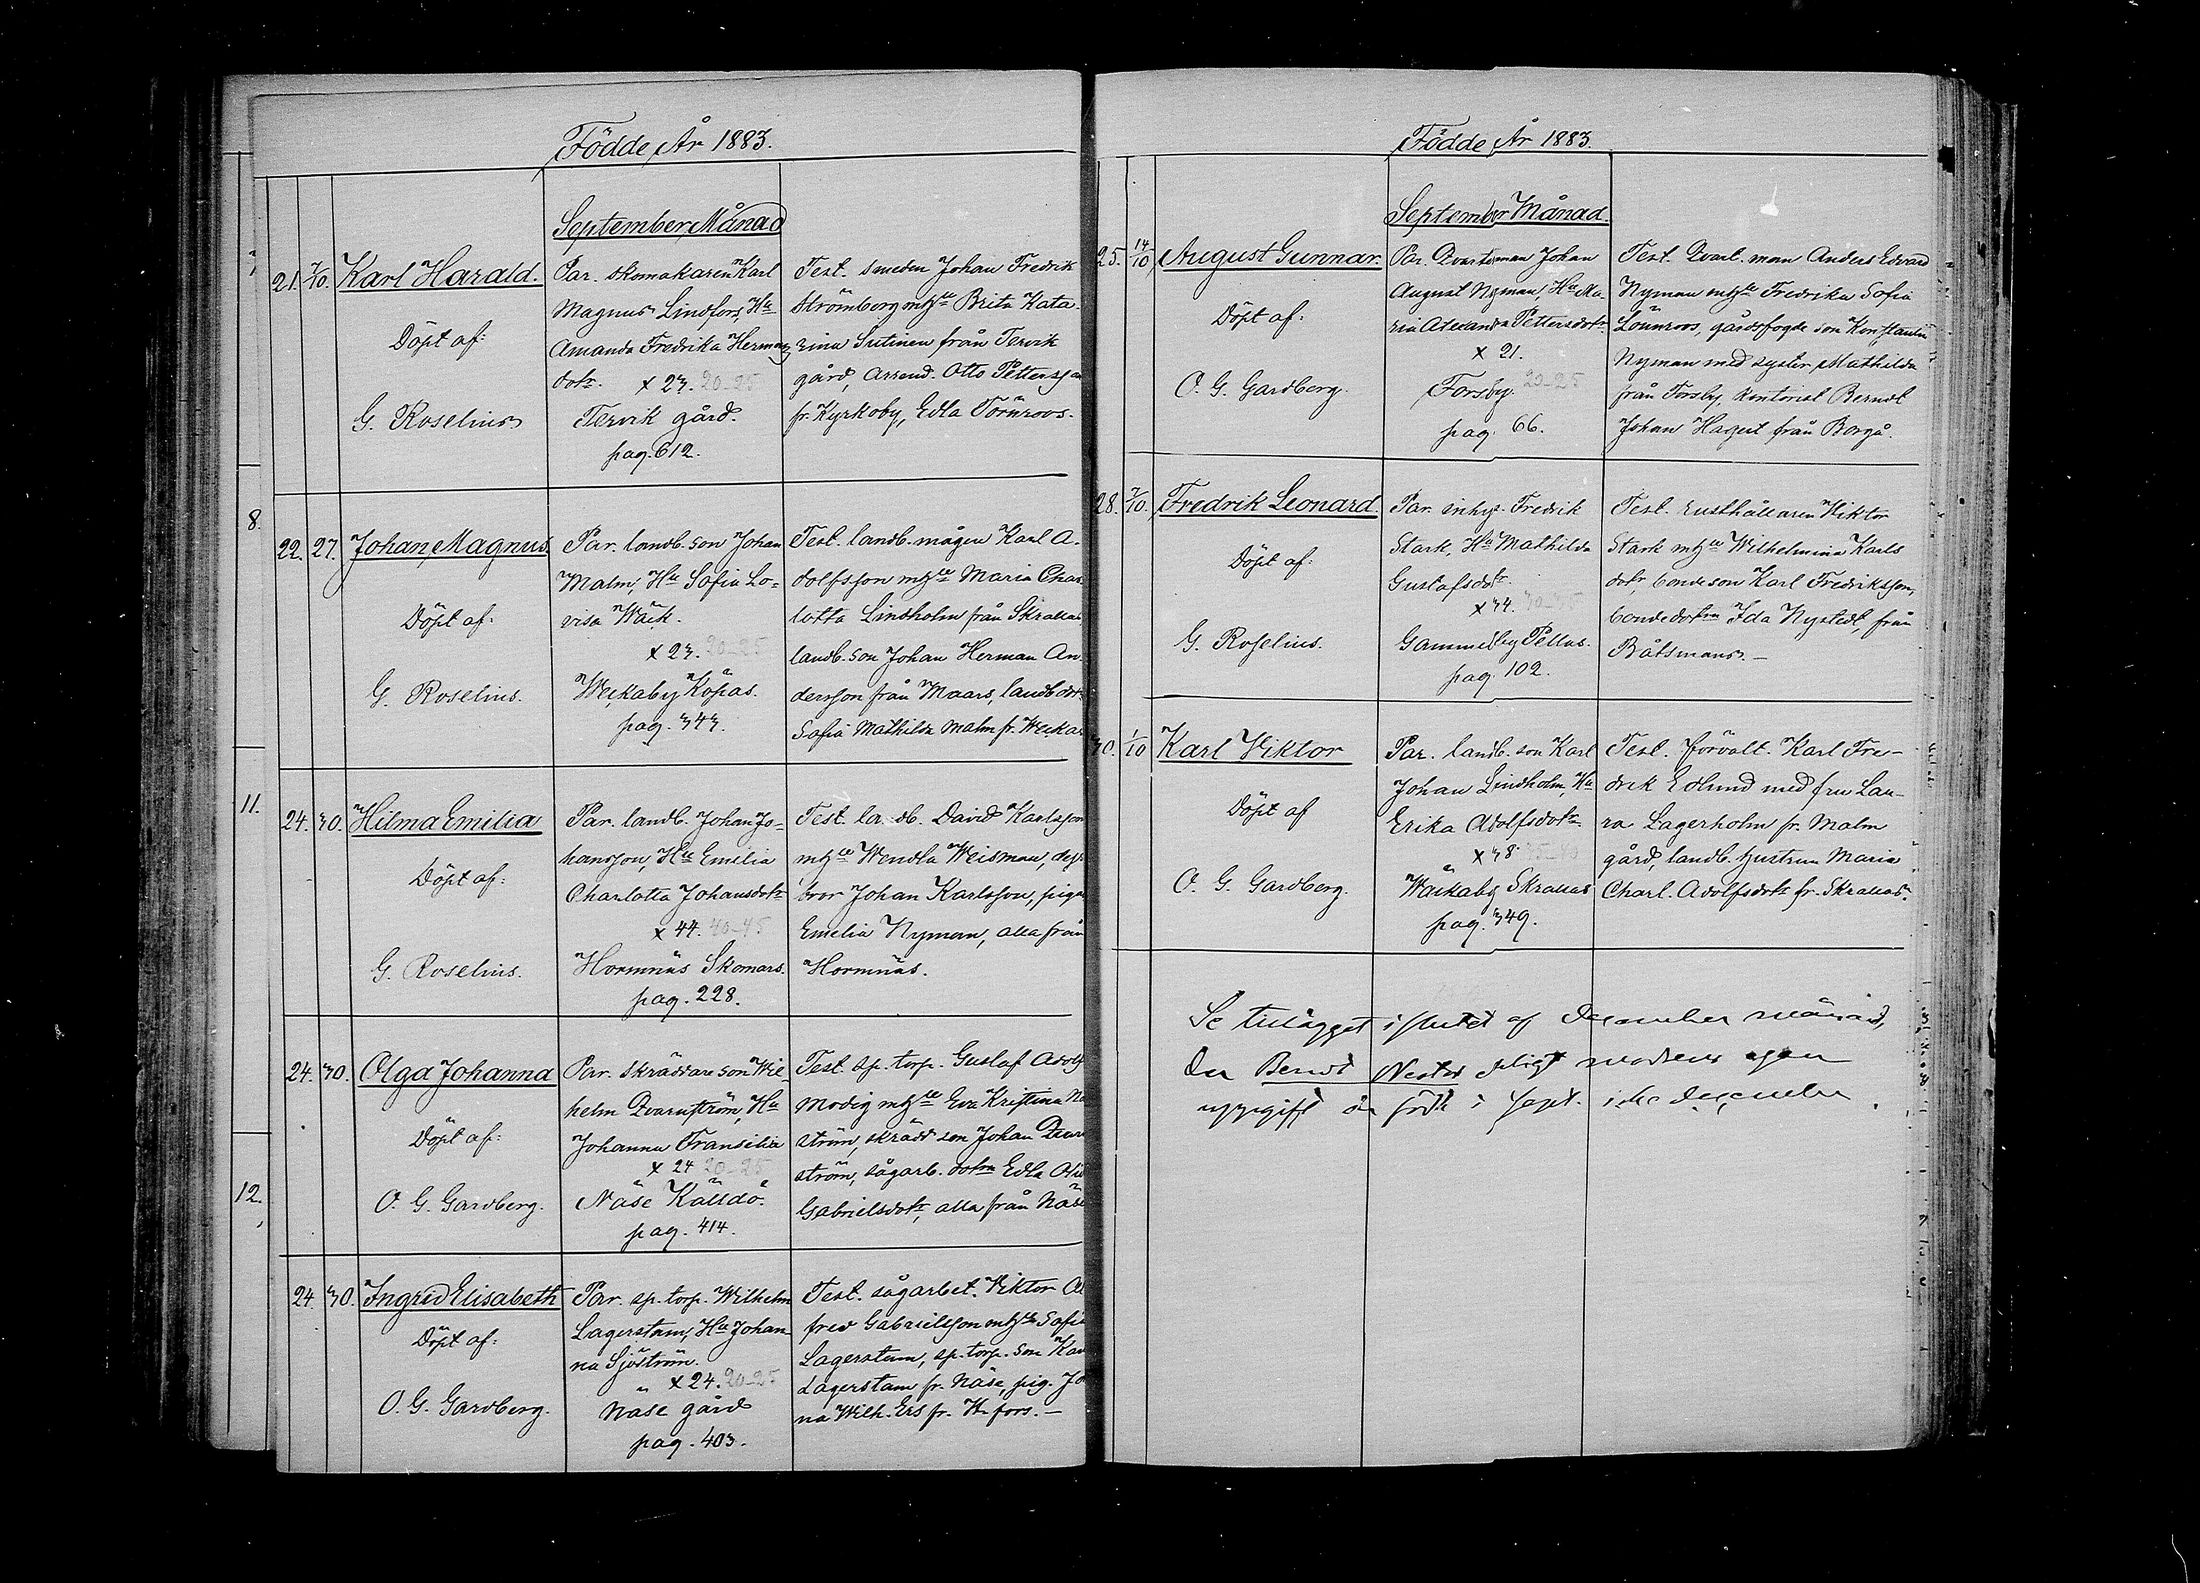 Födde År 1883.
September Månad
21. 7/10. Karl Harald.
Döpt af:
G. Roselius
Par. skomakaren Karl
Magnus Lindfors, Hu
Amanda Fredrika Hermans
dotr. x 23. 20-25
Tervik gård.
pag. 612.
Test. smeden Johan Fredrik
Strömberg m hu Brita Kata-
rina Sutinen från Tervik
gård, arrend. Otto Pettersson
fr. Kyrkoby, Edla Törnroos.
8.
22. 27. Johan Magnus
Döpt af:
G. Roselius.
Par. landb. son Johan
Malm, Hu Sofia Lo-
visa Wäck.
x 23. 20-25
Weckaby Köpas.
pag. 343.
Test. landb. mågen Karl A-
dolfsson m hu Maria Char
lotta Lindholm från Skrallas,
landb. son Johan Herman An-
dersson från Maars, landb dotr
Sofia Mathilda Malm fr. Weckar
11.
24. 30. Hilma Emilia
Döpt af:
G. Roselius.
Par. landb. Johan Jo-
hansson, Hu Emilia
Charlotta Johansdotr
x 44. 40-45
Hormnäs Skomars.
pag. 228.
Test. landb. David Karlsson
m hu Wendla Weisman, dess
bror Johan Karlsson, pigan
Emelia Nyman, alla från
Hormnäs.
24. 30. Olga Johanna
Döpt af:
O. G. Gardberg.
Par. skräddare son Wil-
helm Qvarnström, Hu
Johanna Fransilia
x 24 20-25
Näse Källdö.
pag. 414.
Test. sp. torp. Gustaf Adolf
Modig m hu Eva Kristina
ström, skrädd son Johan Qvarn
ström, sågarb. dotrn Edla
Gabrielsdotr, alla från Näse
12.
24. 30. Ingrid Elisabeth
Döpt af:
O. G. Gardberg.
Par. sp. torp. Wilhelm
Lagerstam, Hu Johan-
na Sjöström.
x 24. 20-25
Näse gård
pag. 403.
Test. sågarbet. Viktor Al
fred Gabrielsson m hu Sofia
Lagerstam, sp. torp. son Karl
Lagerstam fr. Näse, pig. Jo
na Wilh. Ers fr. H-fors. —
Födde År 1883.
September Månad.
25. 14/10 August Gunnar.
Döpt af:
O. G. Gardberg.
Par. Qvarterman Johan
August Nyman, Hu Ma-
ria Alexandra Pettersdotr
x 21.
Forsby. 20-25
pag. 66.
Test. Qvart. man Anders Edvard
Nyman m hu Fredrika Sofia
Lönnroos, gårdsfogde son Konstantin
Nyman med syster Mathilda
från Forsby, kontorist Berndt
Johan Hagert från Borgå.
28. 7/10. Fredrik Leonard.
Döpt af:
G. Roselius.
Par. inhys. Fredrik
Stark, Hu Mathilda
Gustafsdotr
x 34. 30-35
Gammelby Pellas.
pag. 102.
Test. Rusthållaren Viktor
Stark m hu Wilhelmina Karls
dotr, bondeson Karl Fredriksson,
bondedotrn Ida Nystedt, från
Båtsmans. —
30. 1/10 Karl Viktor
Döpt af
O. G. Gardberg.
Par. landb. son Karl
Johan Lindholm, Hu
Erika Adolfsdotr
x 38. 35-40
Wäckaby Skrallas
pag. 349.
Test. förvalt. Karl Fre-
drik Edlund med fru Lau-
ra Lagerholm fr. Malm
gård, landb. hustrun Maria
Charl. Adolfsdotr fr. Skrallas.
Se tillägget i slutet af december månad,
der Bernd Nestor enligt modrens egen
uppgift är född i Sept. icke december.